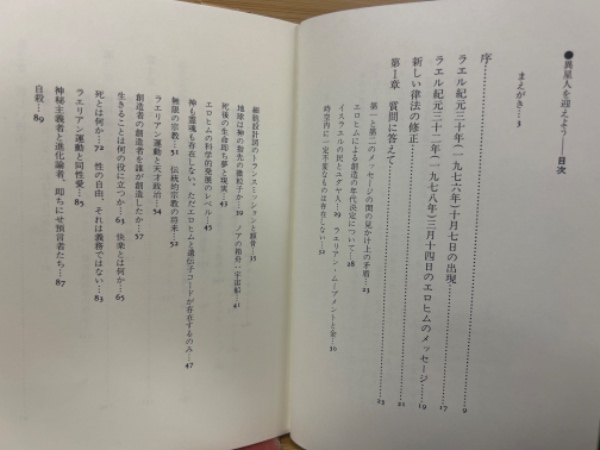 ●異星人を迎えよう――目次
まえがき…3
序…9
ラエル紀元三十年(一九七六年)十月七日の出現…17
ラエル紀元三十二年(一九七八年)三月十四日のエロヒムのメッセージ…19
新しい律法の修正…21
第1章 質問に答えて…23
第一と第二のメッセージの間の見かけ上の矛盾…23
エロヒムによる創造の年代決定について…28
イスラエルの民とユダヤ人…30 ラエリアン・ムーブメントと金…30
時空内に一定不変なものは存在しない…32
細胞設計図のトランスミッションと額骨…35
地球は神の指先の微粒子か…39 ノアの箱舟―宇宙船…41
死後の生命即ち夢と現実…43
エロヒムの科学的発展のレベル…45
神も霊魂も存在しない、ただエロヒムと遺伝子コードが存在するのみ…47
無限の宗教…51 伝統的宗教の将来…52
ラエリアン運動と天才政治…54
創造者の創造者を誰が創造したか…57
生きることは何の役に立つか…63 快楽とは何か…65
死とは何か…72 性の自由、それは義務ではない…83
ラエリアン運動と同性愛…85
神秘主義者と進化論者、即ちにせ預言者たち…87
自殺…89